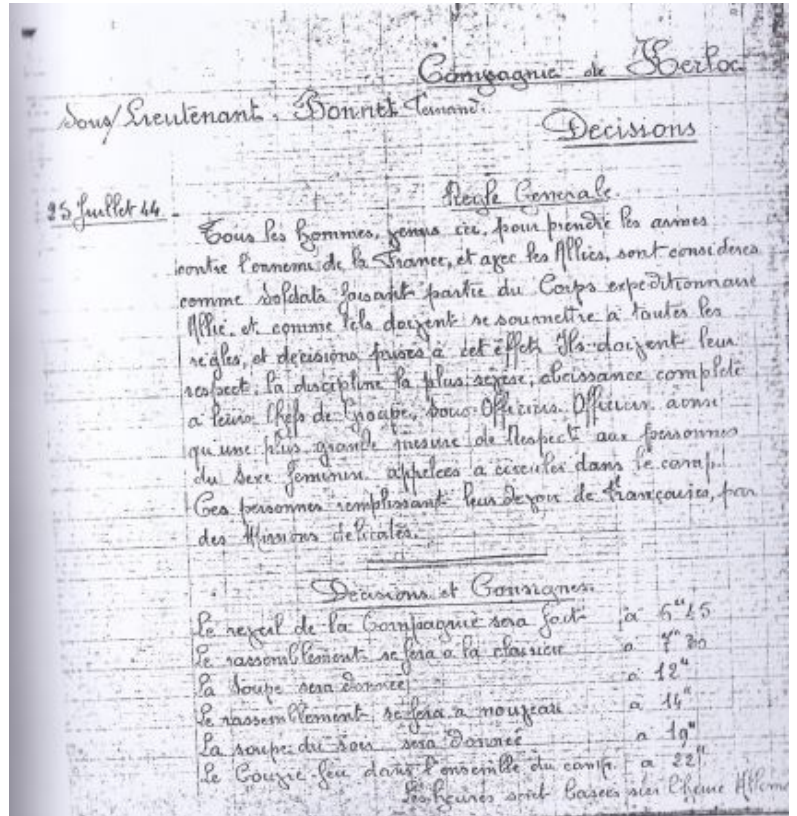 Compagnie de Kerloc
Sous/Lieutenant. Bonnet Fernand.
Decisions
25 Juillet 44.
Regle Generale.
Tous les hommes, venus ici, pour prendre les armes
contre l'ennemi de la France, et avec les Alliés, sont consideres
comme soldats faisant partie du Corps expeditionnaire
Allié. et comme tels doivent se soumettre à toutes les
regles, et decisions prises à cet effet. Ils doivent leur
respect, la discipline la plus severe, obeissance complete
a leurs Chefs de Groupe, Sous-Officiers. Officiers. ainsi
qu'une plus grande mesure de Respect aux personnes
du sexe feminin appelees a circuler dans le camp.
Ces personnes remplissant leur devoir de Françaises, par
des Missions delicates.
Decisions et Consignes.
Le reveil de la Compagnie sera fait à 6H45
Le rassemblement se fera a la clairiere a 7H30
La Soupe sera donnee a 12H
Le rassemblement se fera a nouveau a 14H
La soupe du soir sera donnée a 19H
Le Couvre feu dans l'ensemble du camp. a 22H
Les heures sont basees sur l'heure Alleme